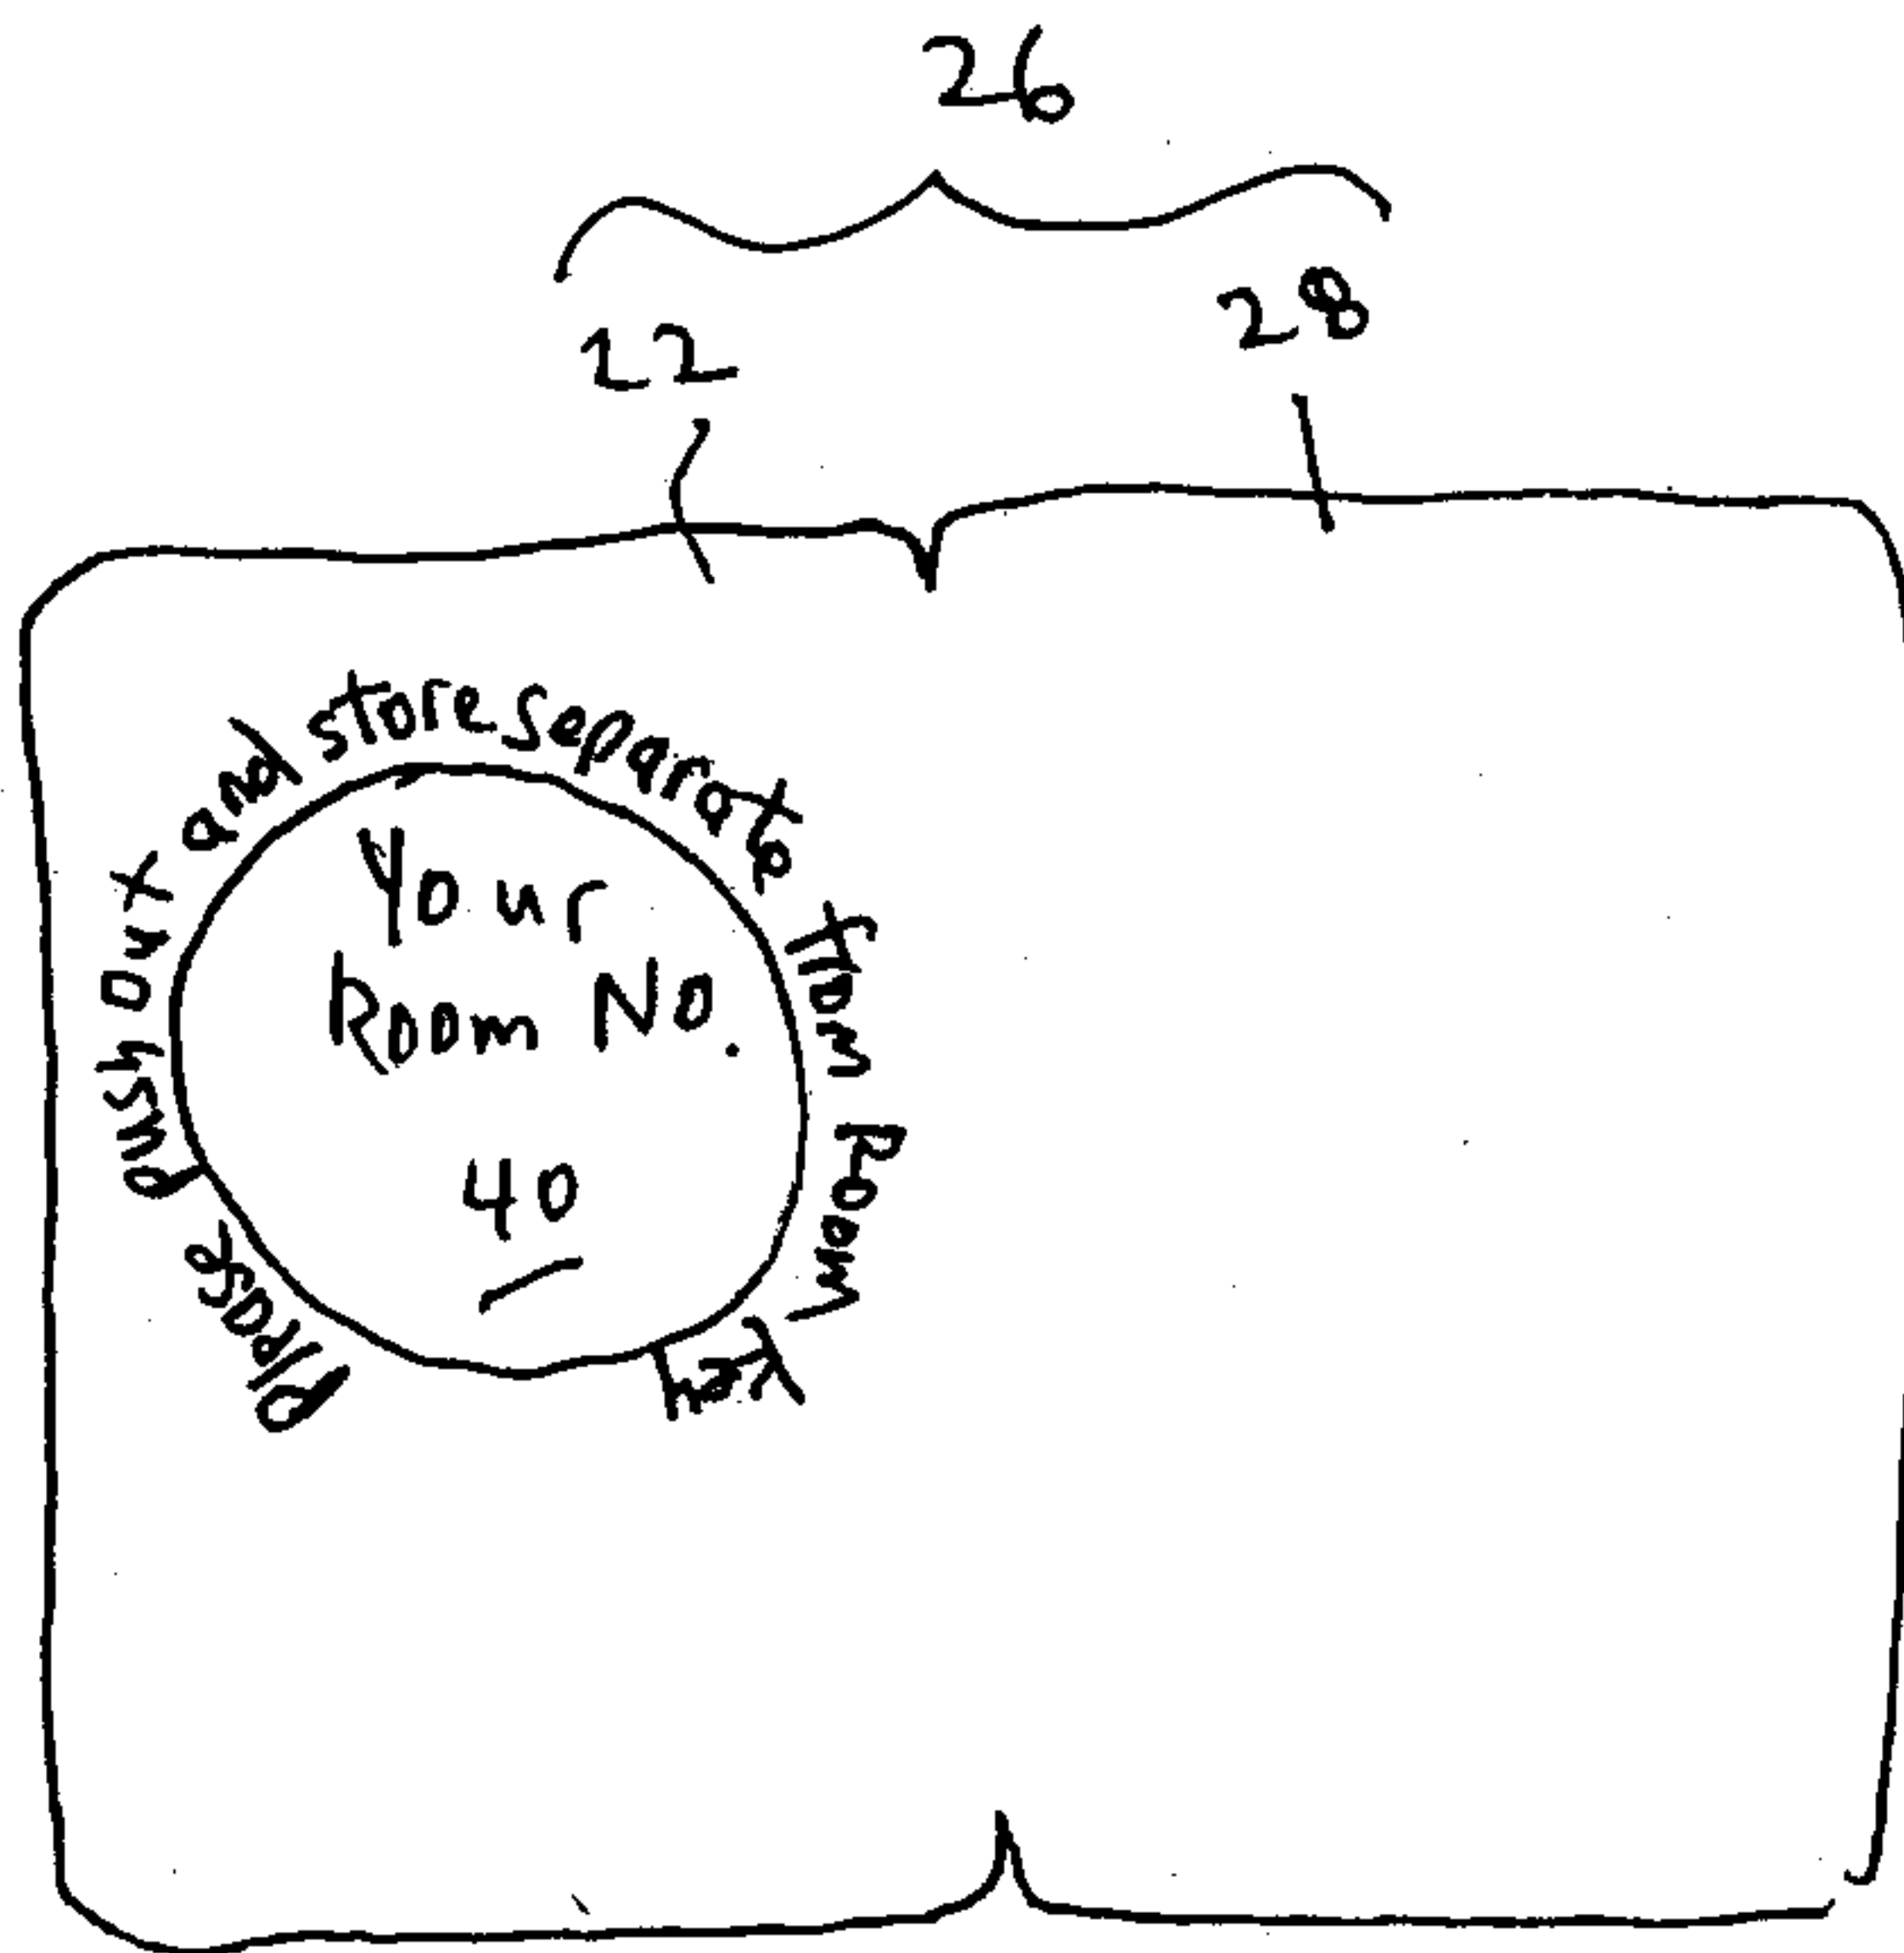 26
22
28
please push out and store separate from Room key
Your
Room No.
40